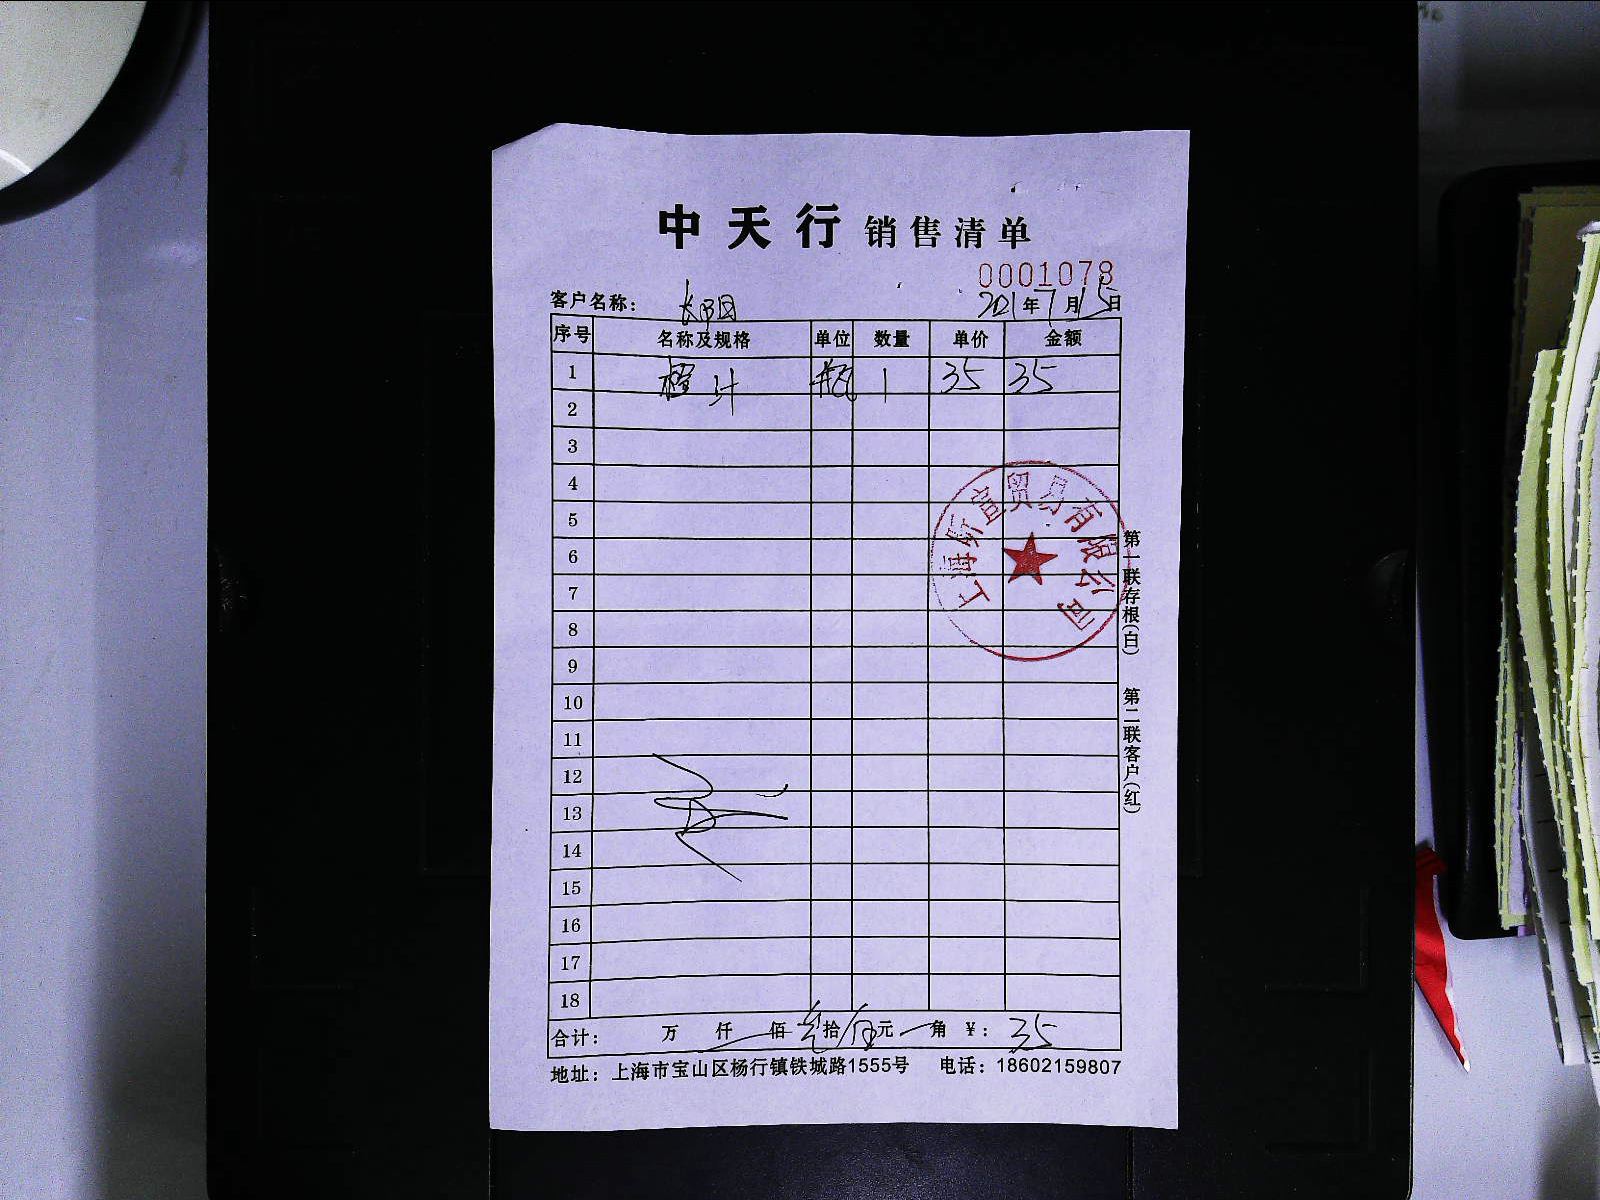 中天行 销售清单
0001078
客户名称： 长阳 2021年7月15日
序号 名称及规格 单位 数量 单价 金额
1 橙汁 瓶 1 35 35
2
3
4
5
6
7
8
9
10
11
12
13
14
15
16
17
18
合计： 万 仟 佰 叁拾伍元 角 ¥： 35
地址：上海市宝山区杨行镇铁城路1555号 电话：18602159807
第一联存根(白) 第二联客户(红)
上海昕宜贸易有限公司